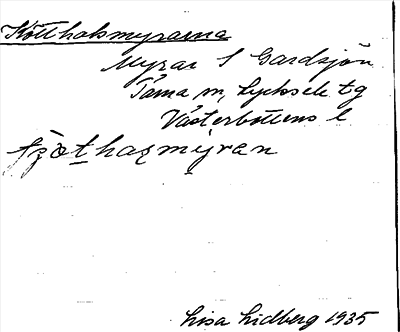 Kötthaksmyrarna
Myrar S Gardsjön
Tärna sn, Lycksele tg
Västerbottens l
Lisa Lidberg 1935